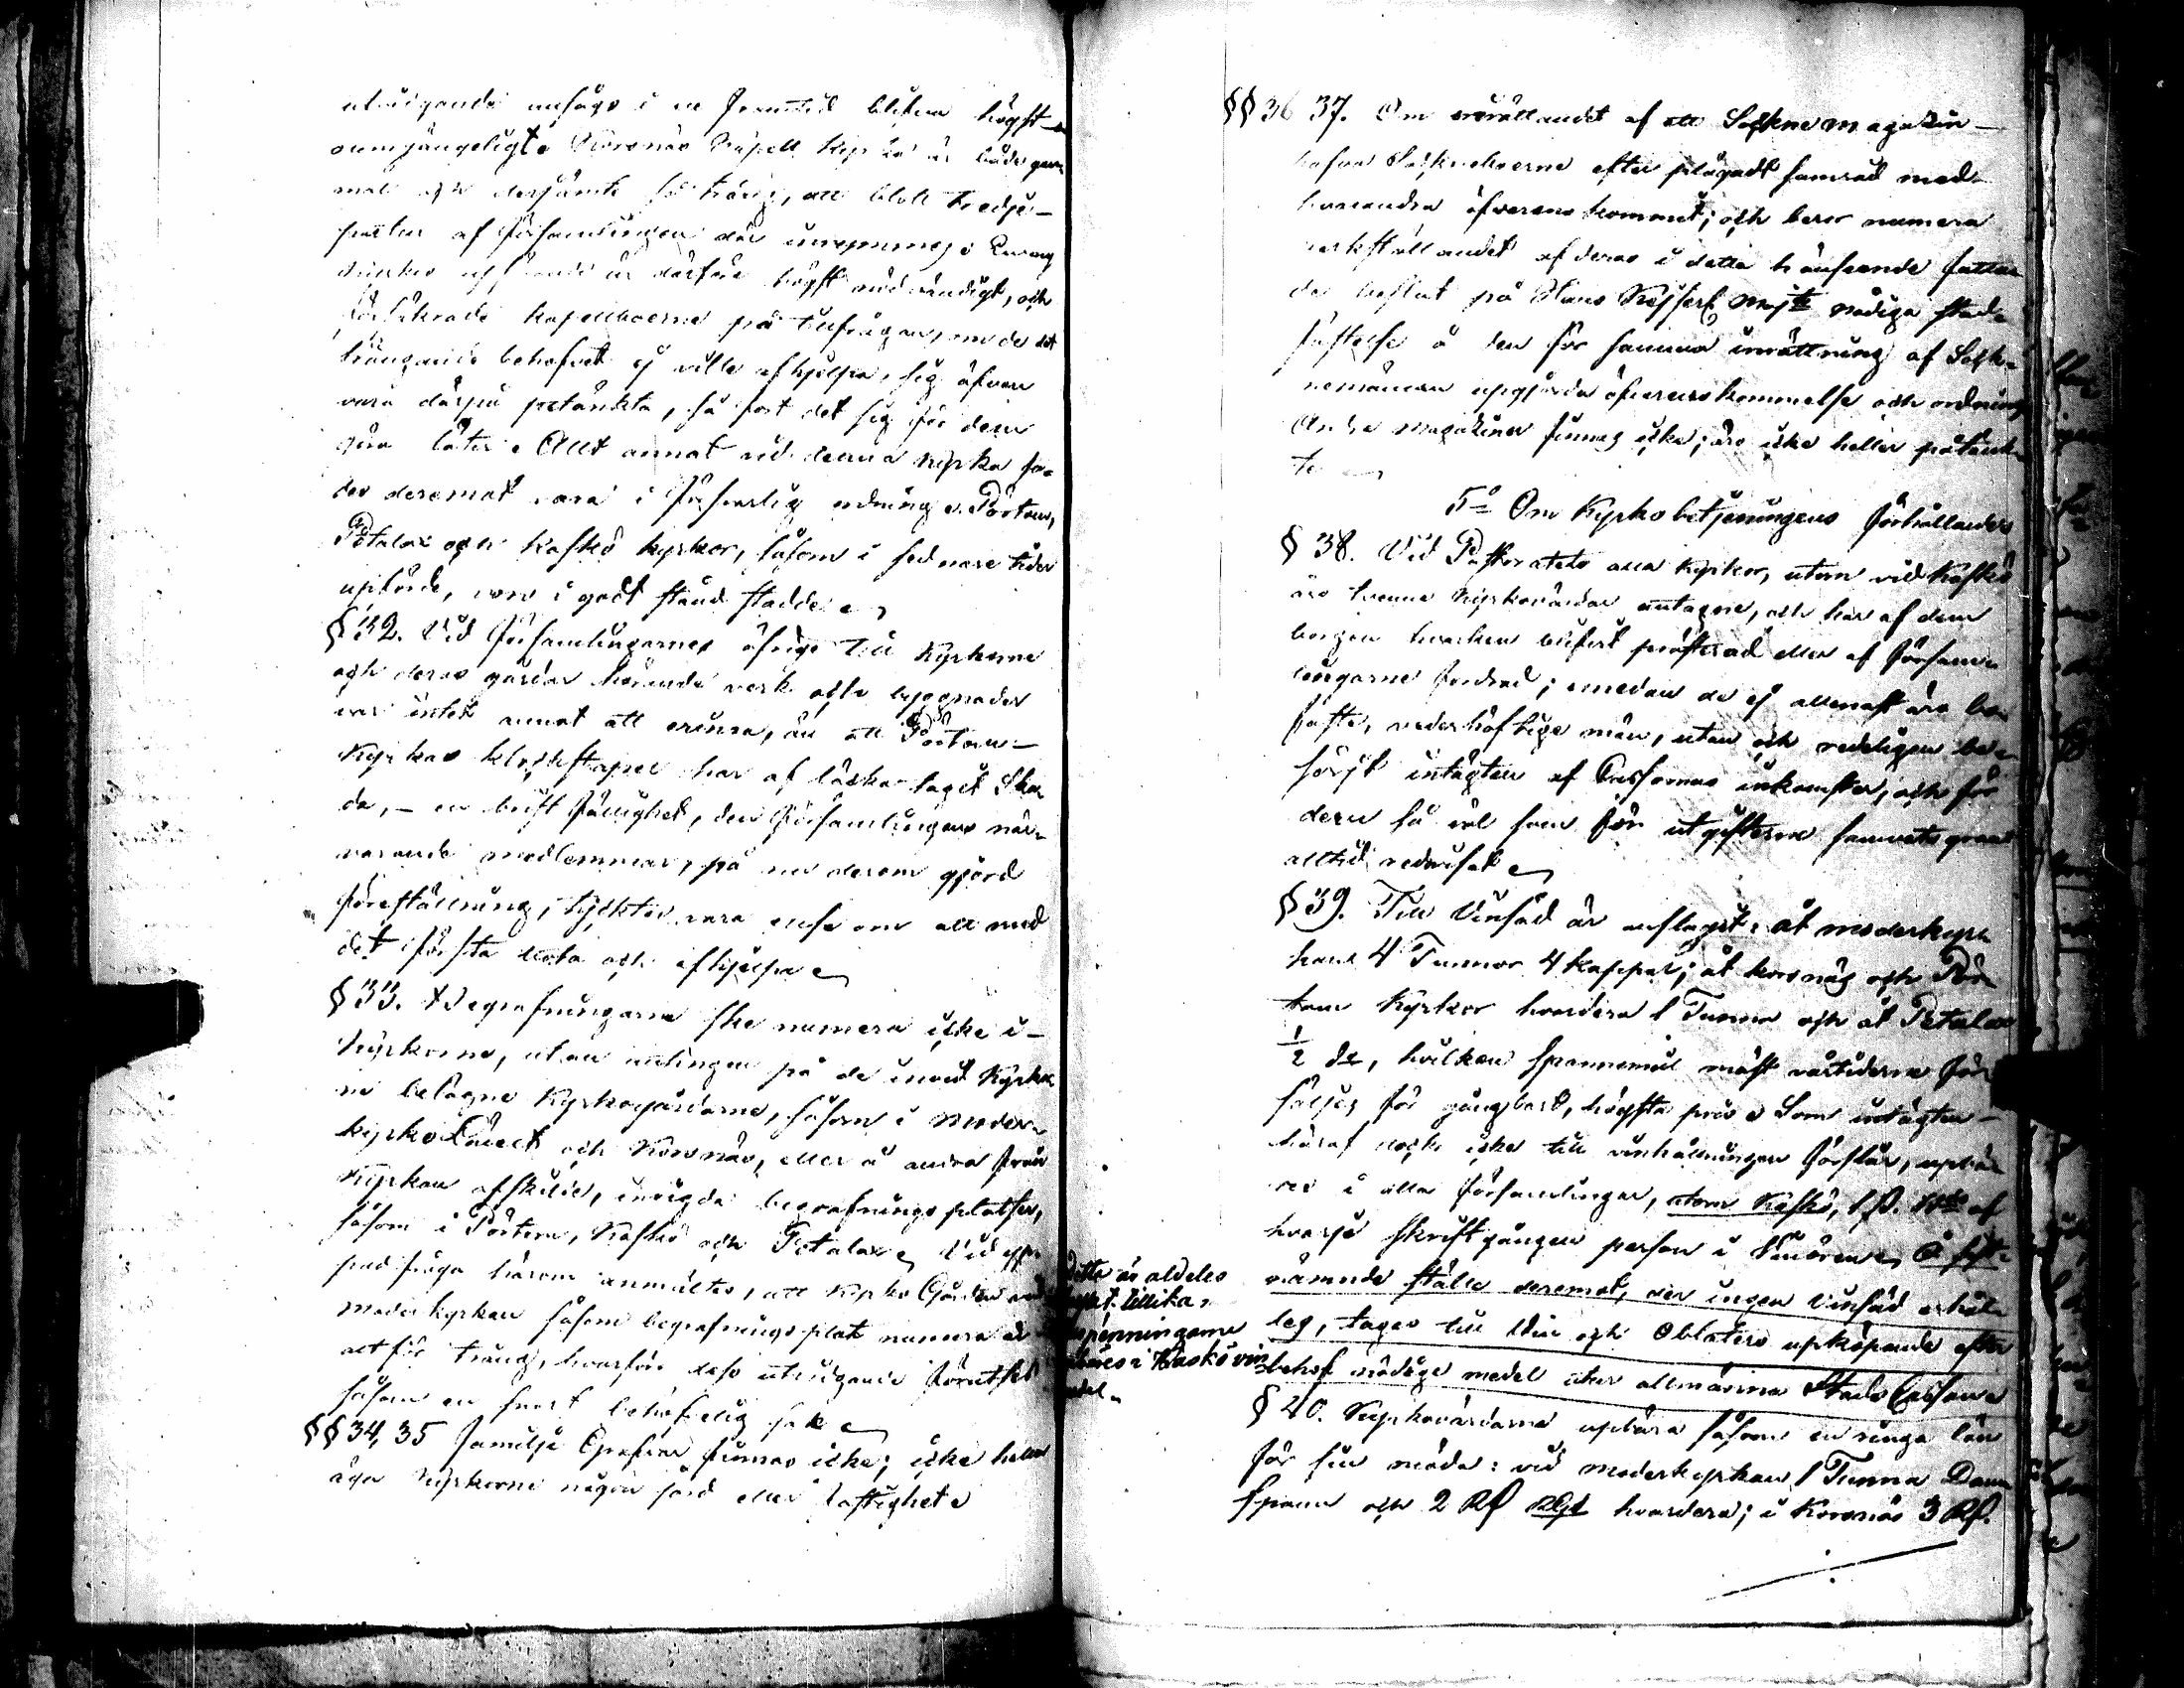 utvidgande ansågs i en framtid blifva högst
oumgängeligt. Korsnäs Kapell Kyrka är både gam
mal och desjämte så trång, att blott tredje
parten af församlingen där inrymmes.
Kyrkas uppförande är därföre högst nödvändigt, och
försäkrade kapellboerne på tillfrågan, om de det
trängande behofvet ej ville afhjelpa, sig äfven
vara därpå petänkta, så fort det sig för dem
göra låter. Allt annat vid denna kyrka
des deremot vara i försvarlig ordning. Pörtom,
Petalax och Kaskö kyrkor, såsom i sednare tider
upförde, voro i godt stånd stadde.
§ 32. Vid Församlingarnes öfrige till Kyrkorne
och deras gårdar hörande verk och byggnader
var intet annat att erinra, än att Pörtom
Kyrkas klockstapel har af åskan taget Ska
da, en brist fällighet, den Församlingens när
varande medlemmar, på dem derom gjord
föreställning, tycktes vara ense om att med
det första bota och afhjelpa
§ 33. Begrafningarna ske numera icke i
Kyrkorne, utan antingen på de invid Kyrkor
ne belägne Kyrkogårdarne, såsom i moder
kyrko och Korsnäs, eller å andra från
Kyrkan afskilde, invigda begrafnings platser,
såsom i Pörtom, Kaskö och Petalax. Vid
fråga härom anmältes, att Kyrko Gården vid
moderkyrkan såsom begrafningsplats numera är
alt för trång, hvarföre dess utvidgande
såsom en snart behöfvelig sak
§§ 34, 35 Familje Grafvar finnas icke; icke heller
äga Kyrkorne någon jord eller fastighet.
§§ 36 37. Om inrättandet af ett Sockne magazin
hafva Socknboerne efter plägadt samråd med
hvarandra öfverenskommit; och beror numera
verkställandet af deras i detta hänseende fatta
de beslut på Hans Kejserl. Majts nådiga stad
fästelse å den för samma inrättning af Sock
nemännen uppgjorda öfverenskommelse och ordning
Andra magaziner finnas icke; äro icke heller påtänk
te
5o Om Kyrkobetjeningens förhållande
§ 38. Vid Pastoratets alla Kyrkor, utom vid Kaskö
äro tvenne Kyrkovärdar antagne, och har af dem
borgen hvarken blifvit präterad eller af församl
lingarne fordrad; emedan de ej allenast äro bo
faste, vederhäftige män, utan och redeligen be
sörjt intägten af Cassornas inkomster, och för
dem så väl som för utgifterna samvetsgrant
alltid redovisat
§ 39. Till Vinsäd är anslaget: åt moderkyr
kan 4 Tunnor 4 kappar; åt Korsnäs och Pör
tom Kyrkor hvardera 1 Tunna och åt Petalax
½ do, hvilken spannemål mäst vårtiderna för
säljes för gångbart, högsta pris. Som intägten
häraf dock icke till vinhållningen förslår, uppbä
res i alla församlingar, utom Kaskö, af
hvarje skriftgången person i Vinören. Å sist
nämnde ställe deremot, der ingen Vinsäd erhål
les, tages till Vin och Oblaters upköpande efter
behof nödige medel utur allmänna Stads Cassan
Detta är aldeles
tillika
penningarne
i Kaskö vin
medel
§ 40. Kyrkovärdarna upbära såsom en ringa lön
för sin möda: vid moderkyrkan 1 Tunna
spann och 2 Rf hvardera; i Korsnäs 3 Rf.